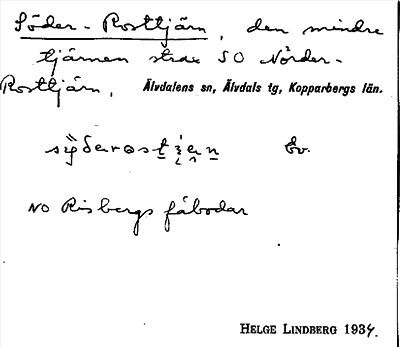 Söder-Rosttjärn, den mindre
tjärnen strax SO Norder-
Rosttjärn, Älvdalens sn, Älvdals tg, Kopparbergs län.
Ev.
NO Risbergs fäbodar
HELGE LINDBERG 1934.